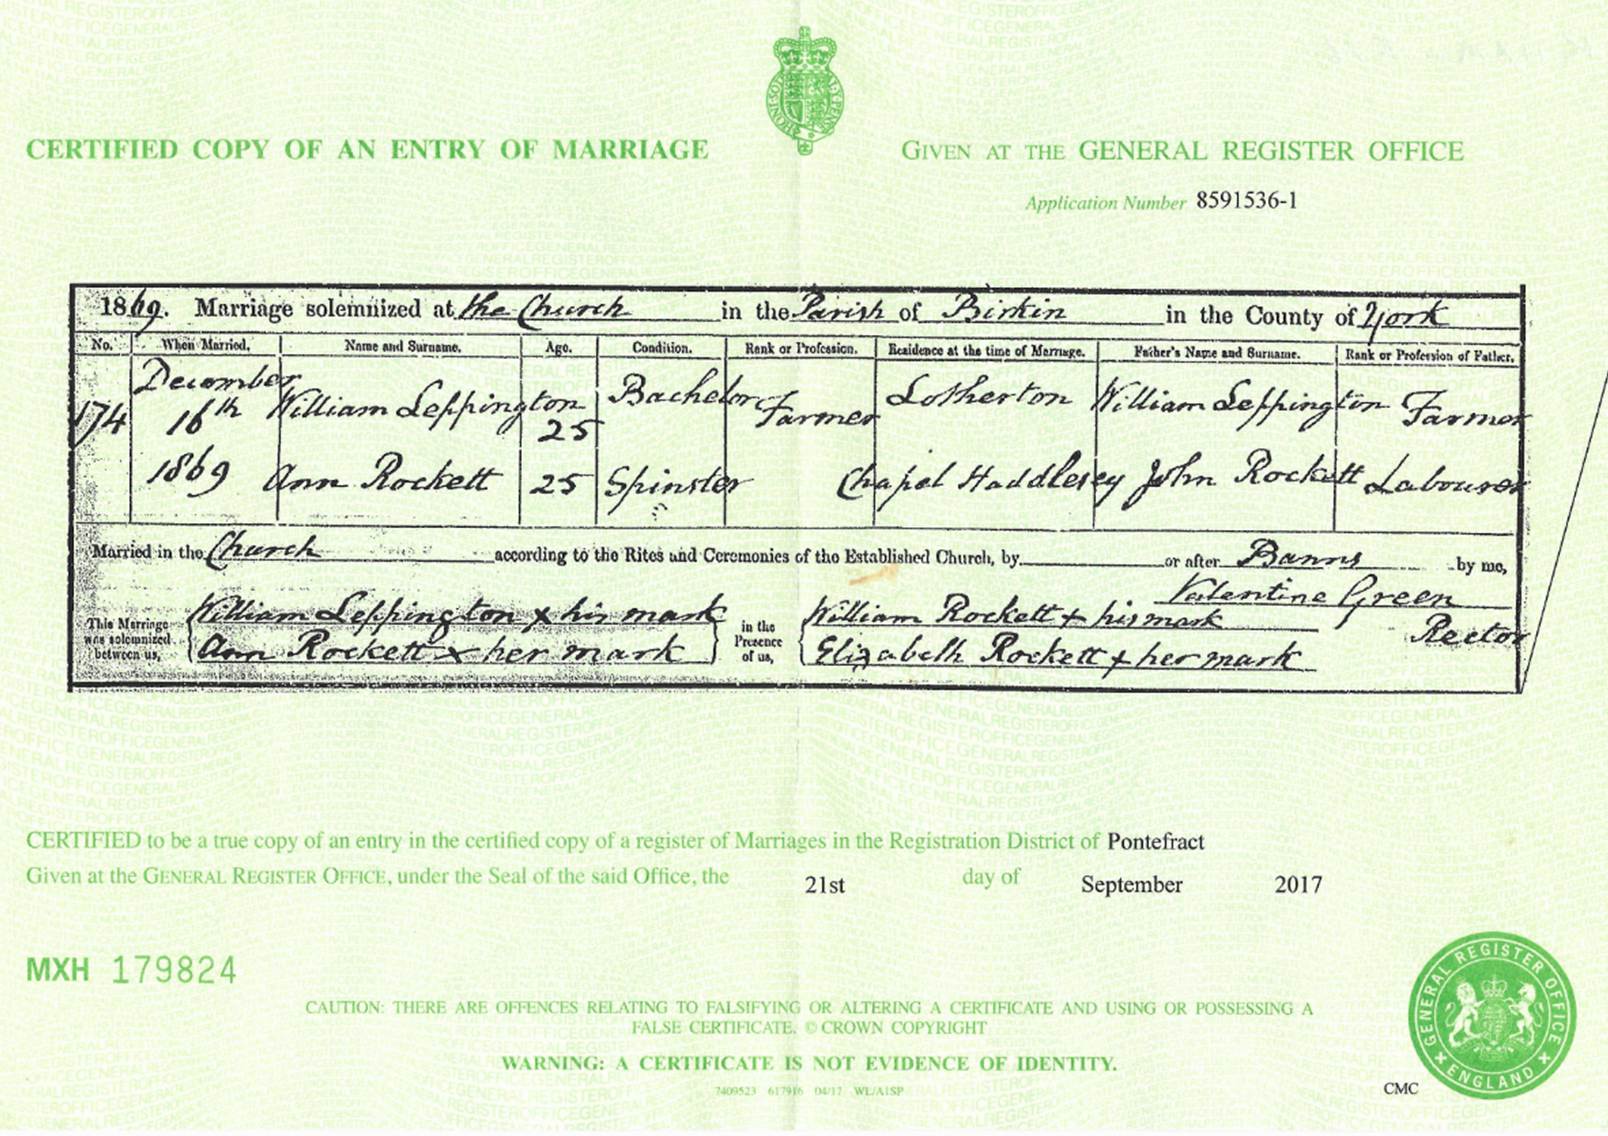 CERTIFIED COPY OF AN ENTRY OF MARRIAGE
GIVEN AT THE GENERAL REGISTER OFFICE
Application Number 8591536-1
1869. Marriage solemnized at the Church in the Parish of Birkin in the County of York
No. When Married. Name and Surname. Age. Condition. Rank or Profession. Residence at the time of Marriage. Father's Name and Surname. Rank or Profession of Father.
174 December 16th 1869 William Leppington 25 Bachelor Farmer Lotherton William Leppington Farmer
Ann Rockett 25 Spinster Chapel Haddlesey John Rockett Labourer
Married in the Church according to the Rites and Ceremonies of the Established Church, by or after Banns by me,
Valentine Green
Rector
This Marriage was solemnized between us,
William Leppington x his mark
Ann Rockett x her mark
in the Presence of us,
William Rockett + his mark
Elizabelh Rockett + her mark
CERTIFIED to be a true copy of an entry in the certified copy of a register of Marriages in the Registration District of Pontefract
Given at the GENERAL REGISTER OFFICE, under the Seal of the said Office, the 21st day of September 2017
MXH 179824
CAUTION: THERE ARE OFFENCES RELATING TO FALSIFYING OR ALTERING A CERTIFICATE AND USING OR POSSESSING A
FALSE CERTIFICATE. © CROWN COPYRIGHT
WARNING: A CERTIFICATE IS NOT EVIDENCE OF IDENTITY.
7409523 617916 04/17 WL/A1SP
CMC
GENERAL REGISTER OFFICE
ENGLAND